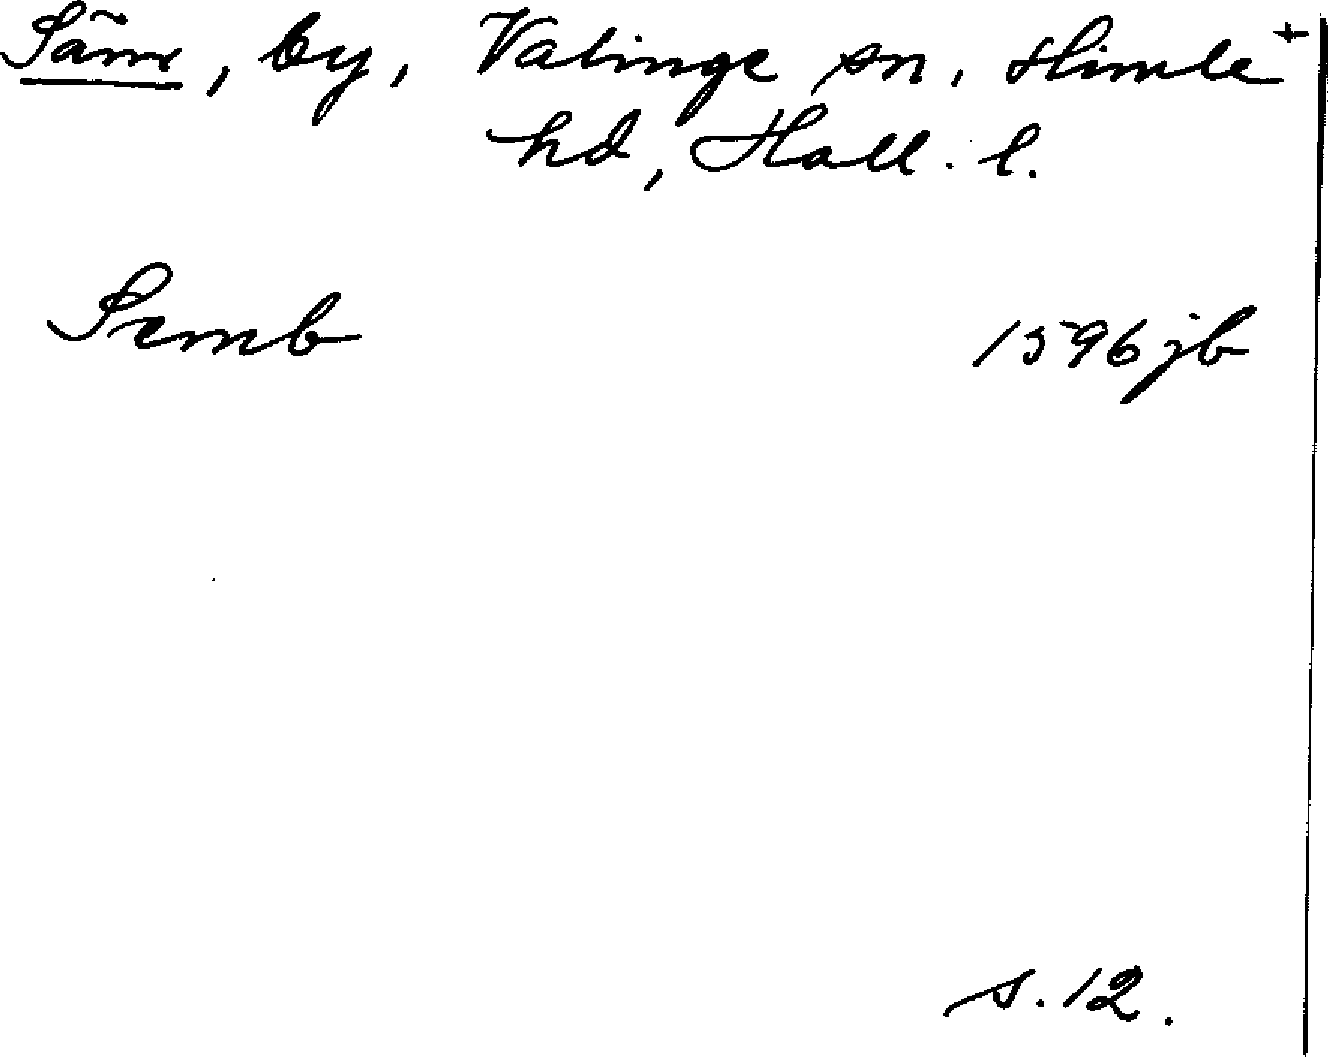 Säm, by, Valinge sn, Himle +
hd, Hall. l.
Semb 1596 jb
s. 12.